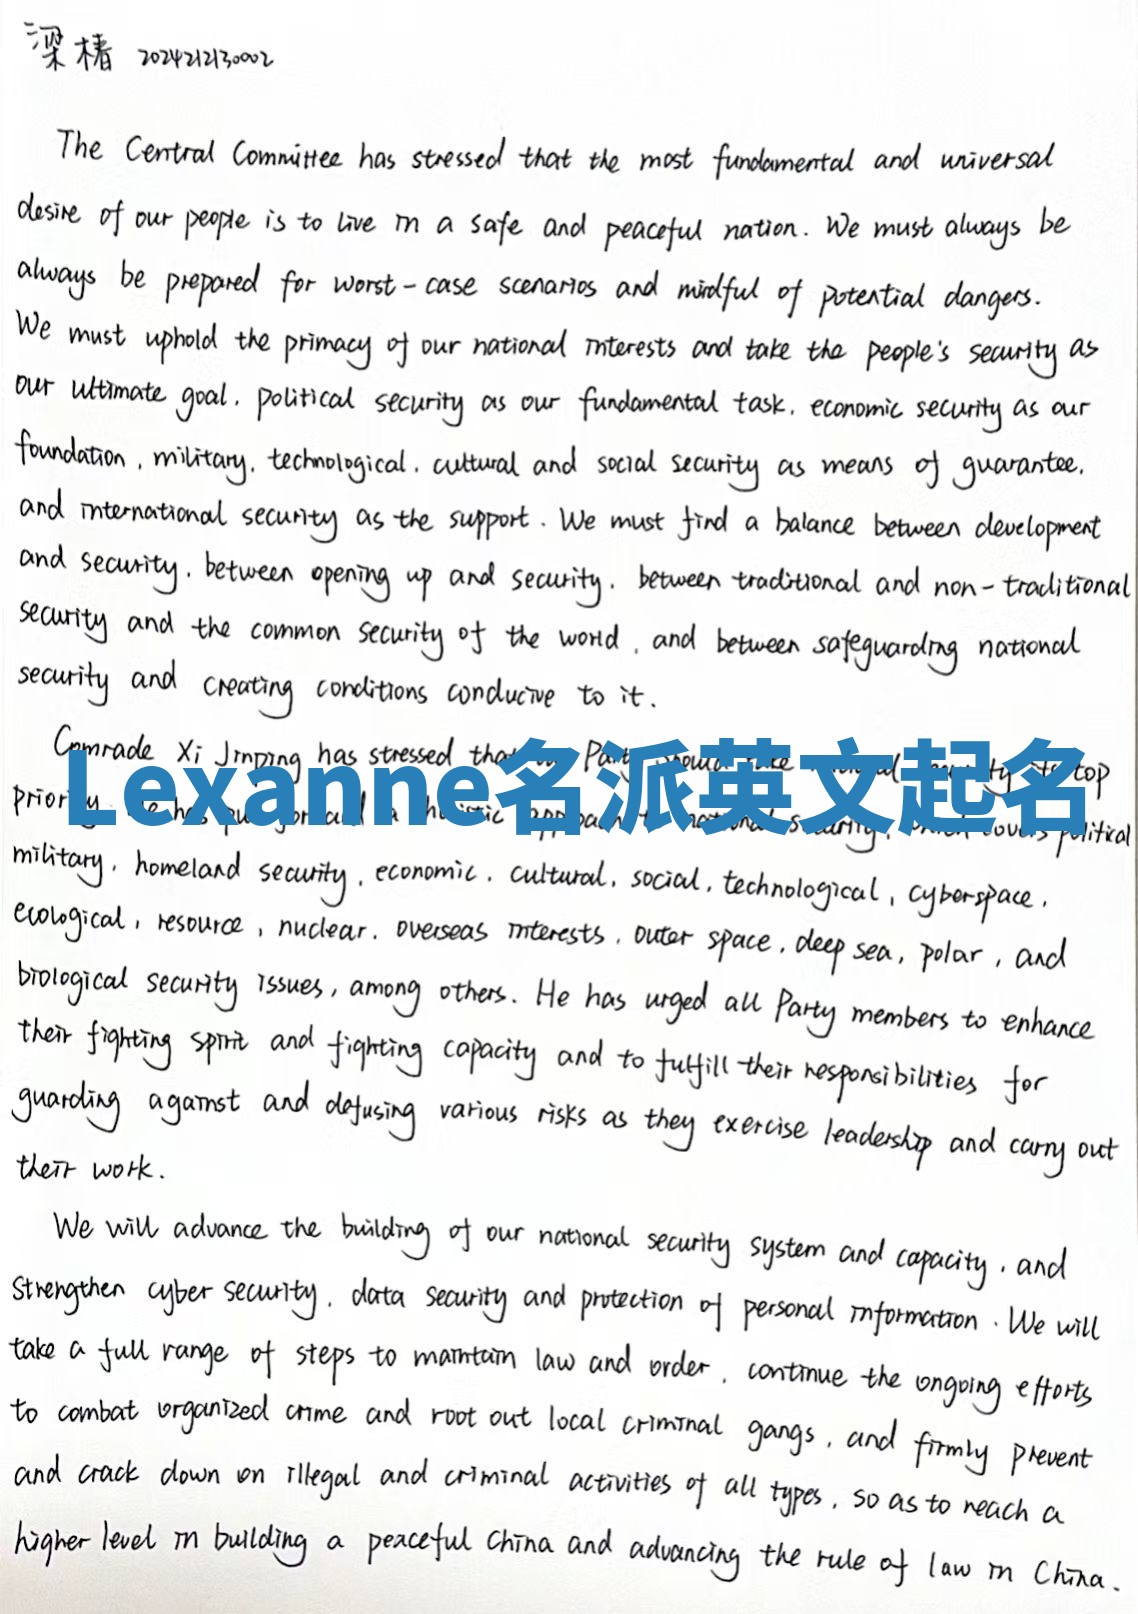 梁椿 2024212130002
The Central Committee has stressed that the most fundamental and universal
desire of our people is to live in a safe and peaceful nation. We must always be
always be prepared for worst-case scenarios and mindful of potential dangers.
We must uphold the primacy of our national interests and take the people's security as
our ultimate goal, political security as our fundamental task, economic security as our
foundation, military, technological, cultural and social security as means of guarantee,
and international security as the support. We must find a balance between development
and security, between opening up and security, between traditional and non-traditional
security and the common security of the world, and between safeguarding national
security and creating conditions conducive to it.
Comrade Xi Jinping has stressed that Party should take security its top
Lexanne名派英文起名
priority. He has put forward a holistic approach to national security, which covers political
military, homeland security, economic, cultural, social, technological, cyberspace,
ecological, resource, nuclear, overseas interests, outer space, deep sea, polar, and
biological security issues, among others. He has urged all Party members to enhance
their fighting spirit and fighting capacity and to fulfill their responsibilities for
guarding against and defusing various risks as they exercise leadership and carry out
their work.
We will advance the building of our national security system and capacity, and
strengthen cyber security, data security and protection of personal information. We will
take a full range of steps to maintain law and order, continue the ongoing efforts
to combat organized crime and root out local criminal gangs, and firmly prevent
and crack down on illegal and criminal activities of all types, so as to reach a
higher level in building a peaceful China and advancing the rule of law in China.